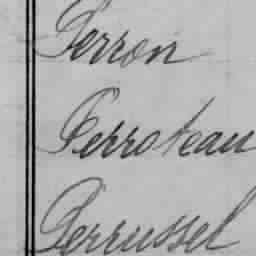 Perron
Perroteau
Perrussel